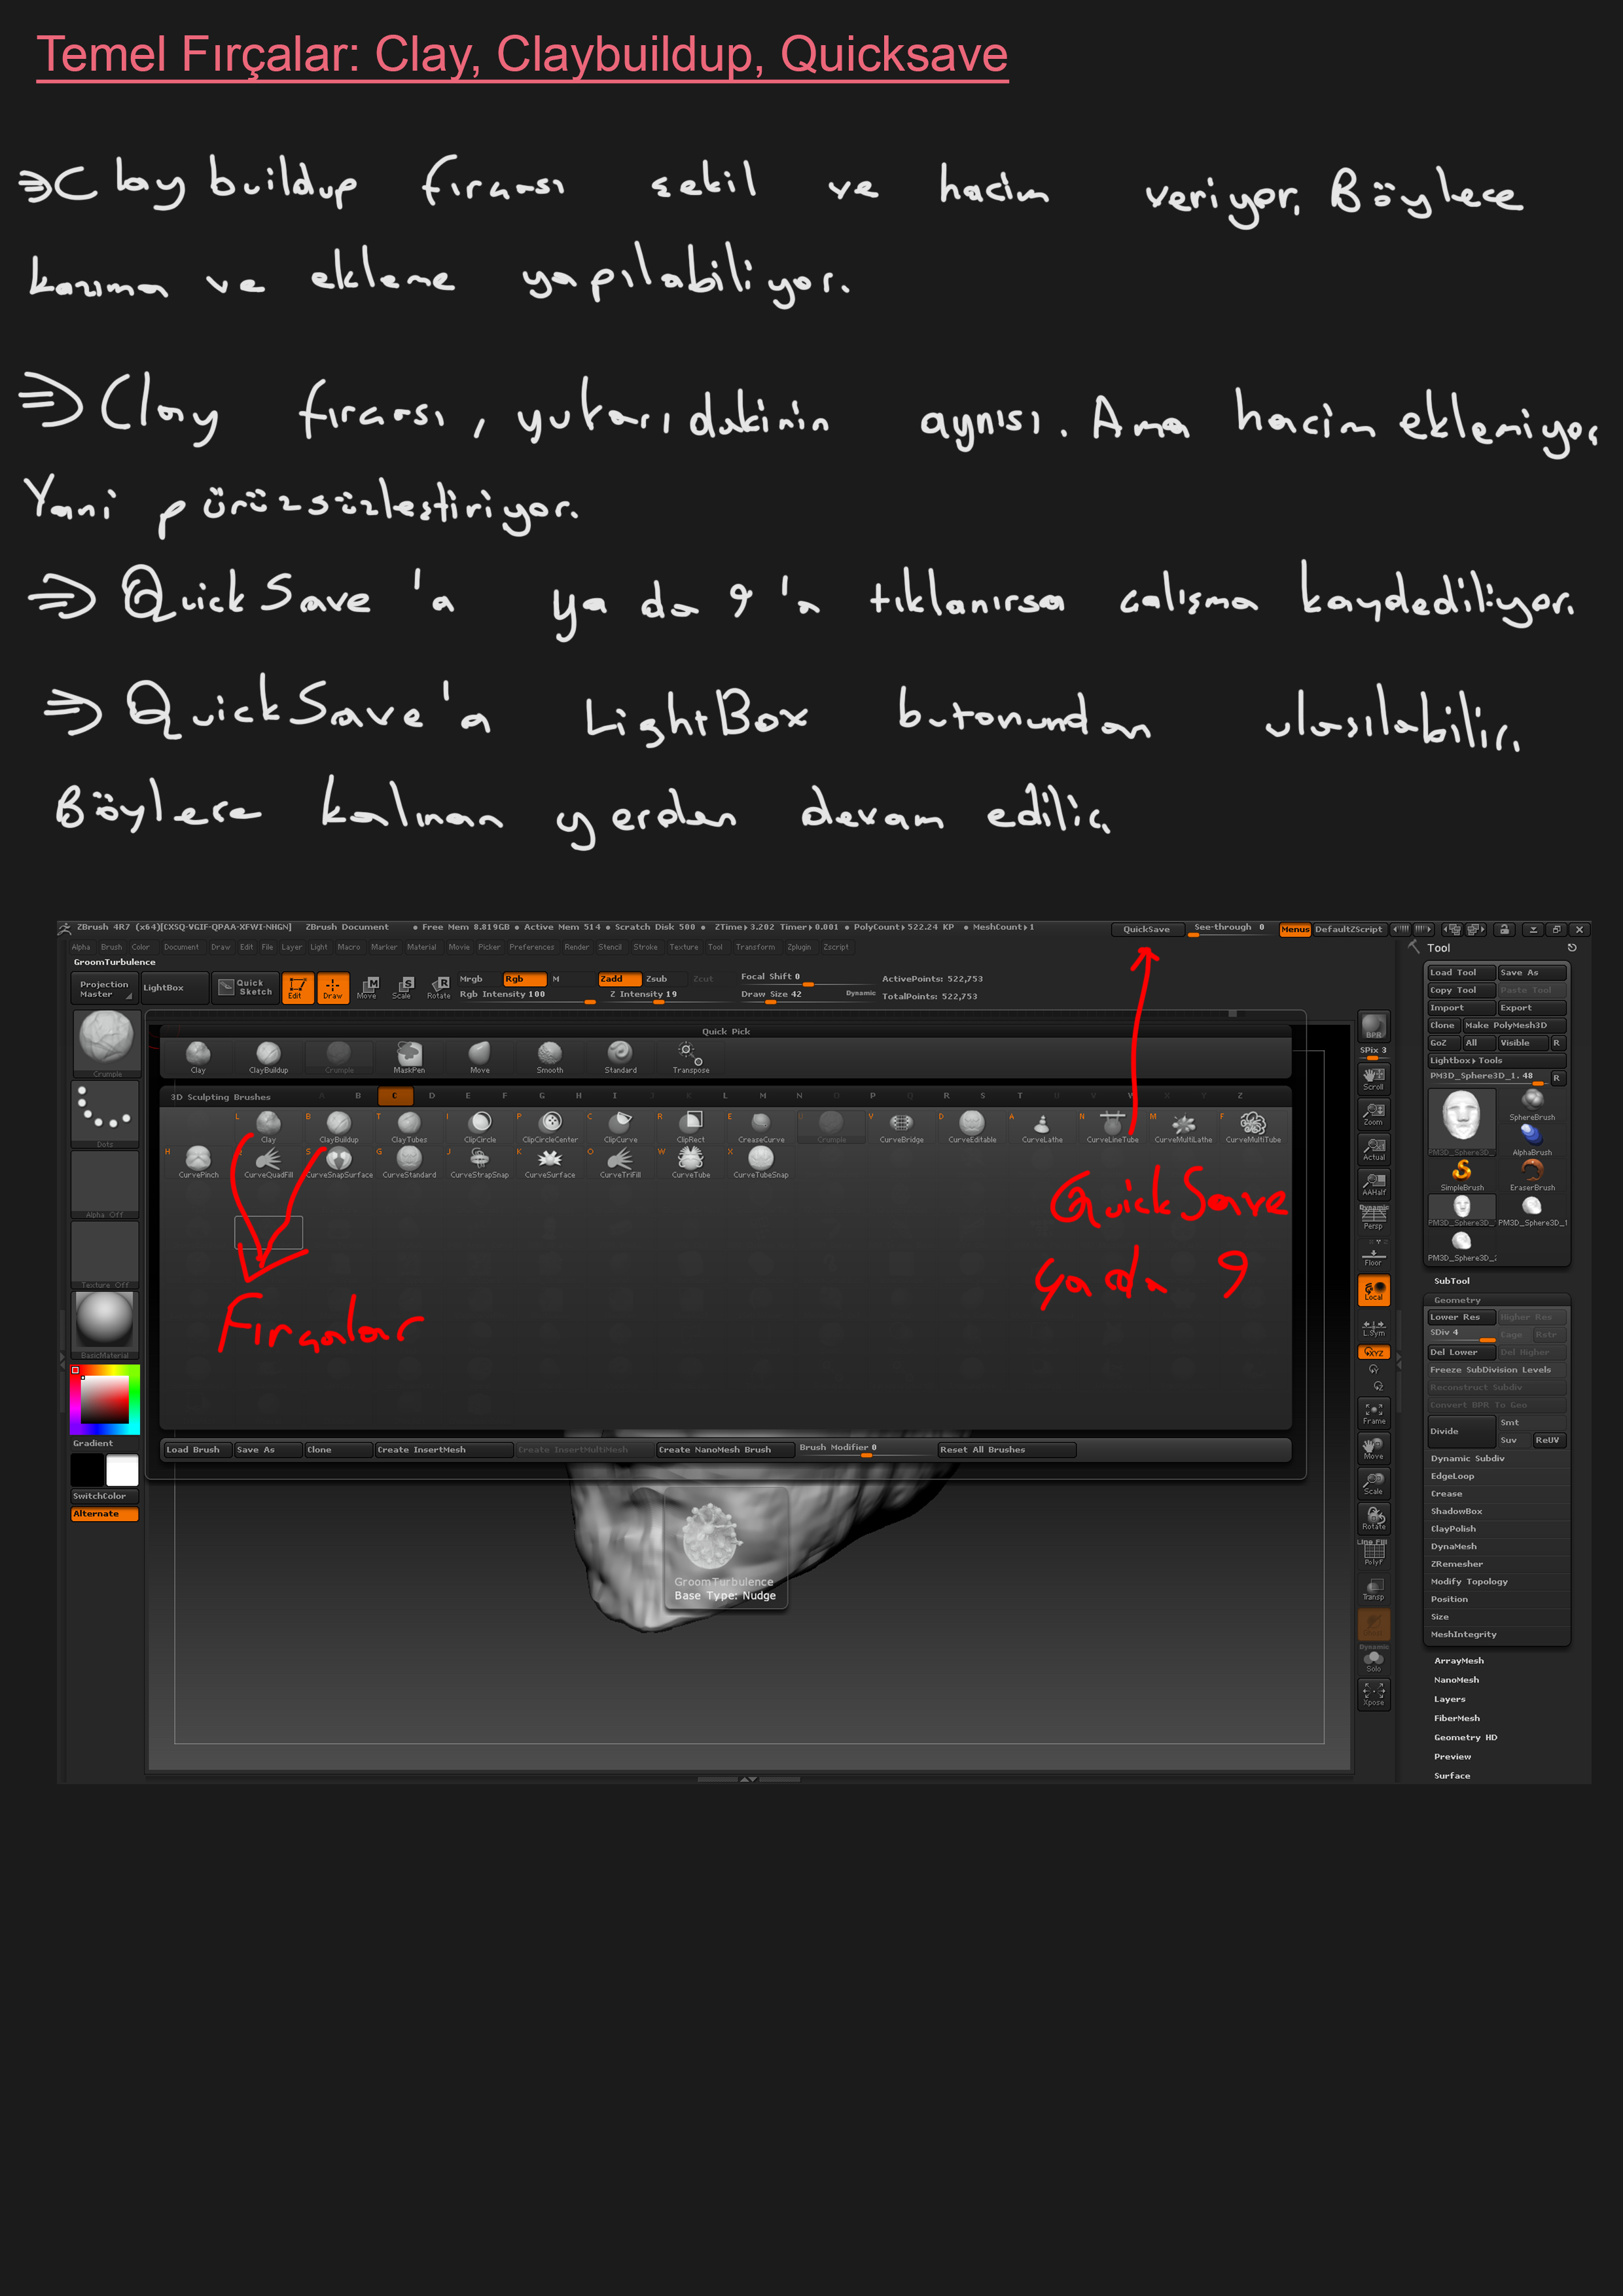 Temel Fırçalar: Clay, Claybuildup, Quicksave
⇒Claybuildup fırçası şekil ve hacim veriyor. Böylece
kazıma ve ekleme yapılabiliyor.
⇒Clay fırçası, yukarıdakinin aynısı. Ama hacim eklemiyor.
Yani pürüzsüzleştiriyor.
⇒QuickSave'a ya da 9'a tıklanırsa çalışma kaydediliyor.
⇒QuickSave'a LightBox butonundan ulaşılabilir.
Böylece kalınan yerden devam edilir.
ZBrush 4R7 (x64)[CXSQ-VGIF-QPAA-XFWI-NHGN] ZBrush Document • Free Mem 8.819GB • Active Mem 514 • Scratch Disk 500 • ZTime▸3.202 Timer▸0.001 • PolyCount▸522.24 KP • MeshCount▸1 QuickSave See-through 0 Menus DefaultZScript
Alpha Brush Color Document Draw Edit File Layer Light Macro Marker Material Movie Picker Preferences Render Stencil Stroke Texture Tool Transform Zplugin Zscript
GroomTurbulence
Projection Master LightBox Quick Sketch Edit Draw Move Scale Rotate
Mrgb Rgb M Zadd Zsub Zcut Focal Shift 0 ActivePoints: 522,753
Rgb Intensity 100 Z Intensity 19 Draw Size 42 Dynamic TotalPoints: 522,753
Quick Pick
Clay ClayBuildup Crumple MaskPen Move Smooth Standard Transpose
3D Sculpting Brushes A B C D E F G H I J K L M N O P Q R S T U V W X Y Z
L B T I P C R E U V D A N M F
Clay ClayBuildup ClayTubes ClipCircle ClipCircleCenter ClipCurve ClipRect CreaseCurve Crumple CurveBridge CurveEditable CurveLathe CurveLineTube CurveMultiLathe CurveMultiTube
H S G J K O W X
CurvePinch CurveQuadFill CurveSnapSurface CurveStandard CurveStrapSnap CurveSurface CurveTriFill CurveTube CurveTubeSnap
QuickSave
ya da 9
Fırçalar
Load Brush Save As Clone Create InsertMesh Create InsertMultiMesh Create NanoMesh Brush Brush Modifier 0 Reset All Brushes
GroomTurbulence
Base Type: Nudge
Crumple
Dots
Alpha Off
Texture Off
BasicMaterial
Gradient
SwitchColor
Alternate
BPR
SPix 3
Scroll
Zoom
Actual
AAHalf
Dynamic
Persp
Floor
Local
L.Sym
XYZ
Y
Z
Frame
Move
Scale
Rotate
Line Fill
PolyF
Transp
Dynamic
Solo
Xpose
Tool
Load Tool Save As
Copy Tool Paste Tool
Import Export
Clone Make PolyMesh3D
GoZ All Visible R
Lightbox▸Tools
PM3D_Sphere3D_1. 48 R
SphereBrush
PM3D_Sphere3D_ AlphaBrush
SimpleBrush EraserBrush
PM3D_Sphere3D_ PM3D_Sphere3D_1
PM3D_Sphere3D_2
SubTool
Geometry
Lower Res Higher Res
SDiv 4 Cage Rstr
Del Lower Del Higher
Freeze SubDivision Levels
Reconstruct Subdiv
Convert BPR To Geo
Divide Smt
Suv ReUV
Dynamic Subdiv
EdgeLoop
Crease
ShadowBox
ClayPolish
DynaMesh
ZRemesher
Modify Topology
Position
Size
MeshIntegrity
ArrayMesh
NanoMesh
Layers
FiberMesh
Geometry HD
Preview
Surface